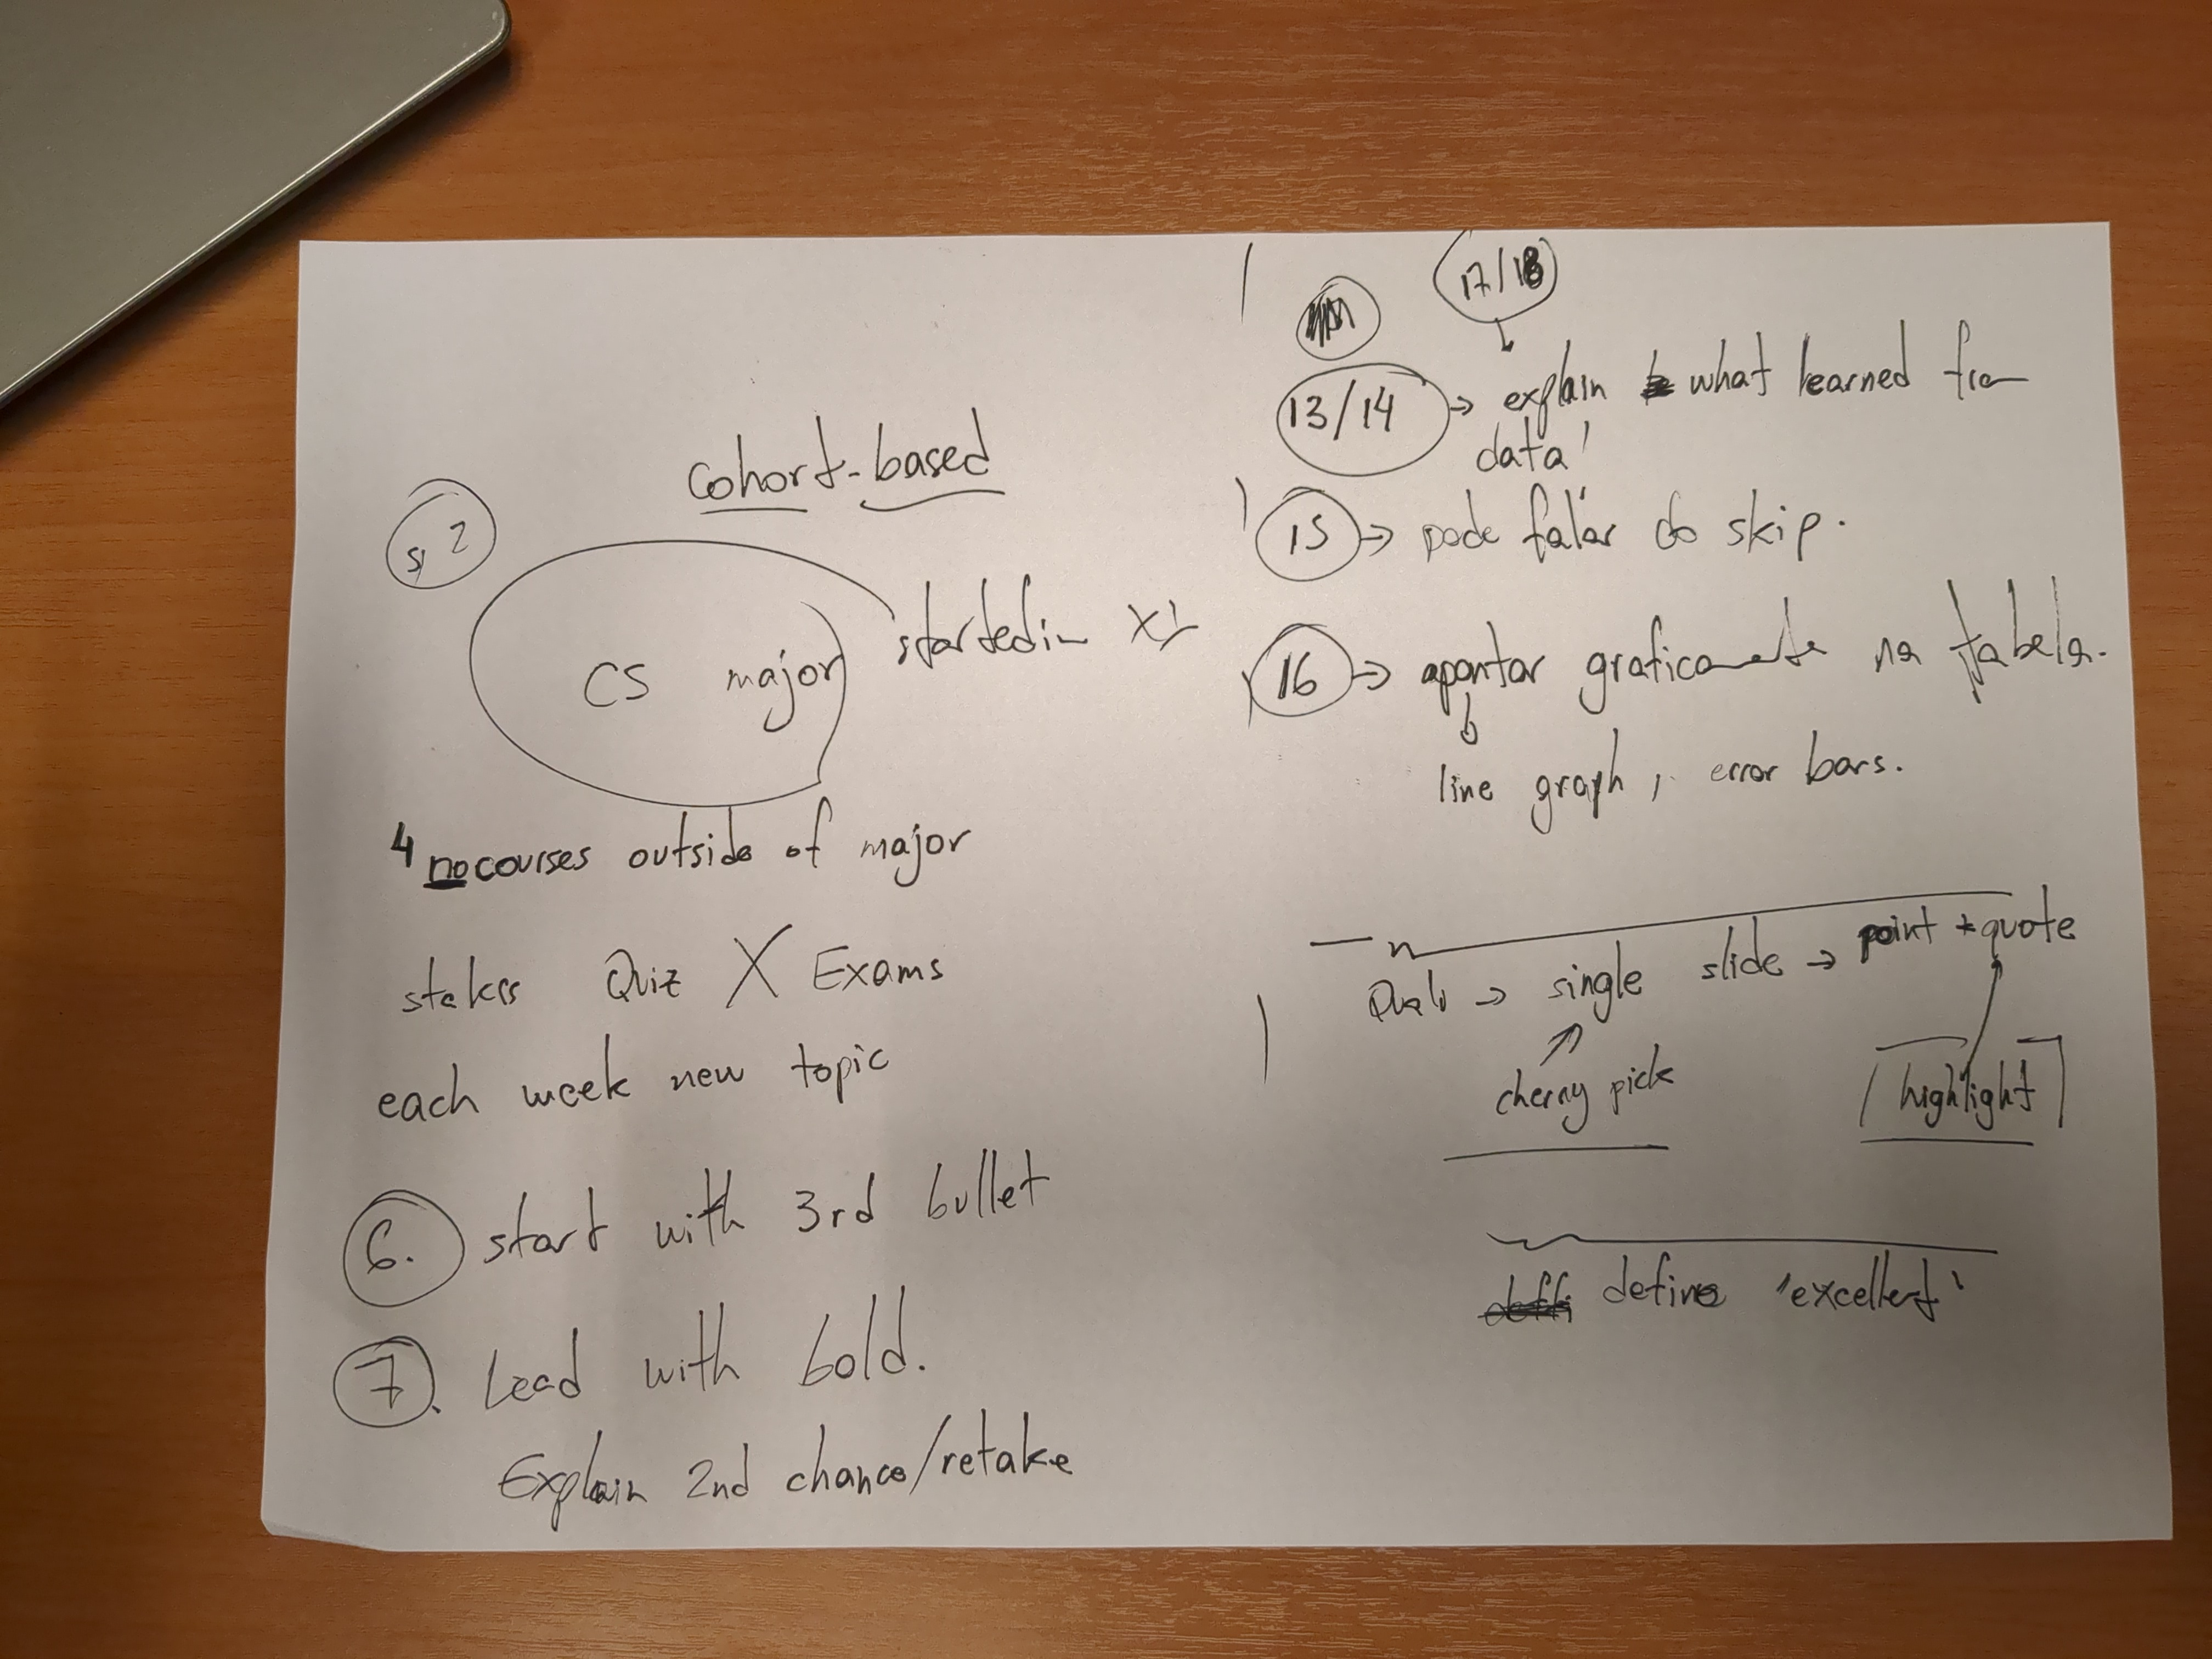 cohort-based
S, 2
CS major started in XY
4 no courses outside of major
stakes Quiz X Exams
each week new topic
6. start with 3rd bullet
7. Lead with bold.
Explain 2nd chance/retake
17/18
13/14 → explain what learned from
data!
15 → pode falar do skip.
16 → apontar graficamente na tabela.
line graph, error bars.
Quali → single slide → point + quote
cherry pick highlight
define 'excellent'